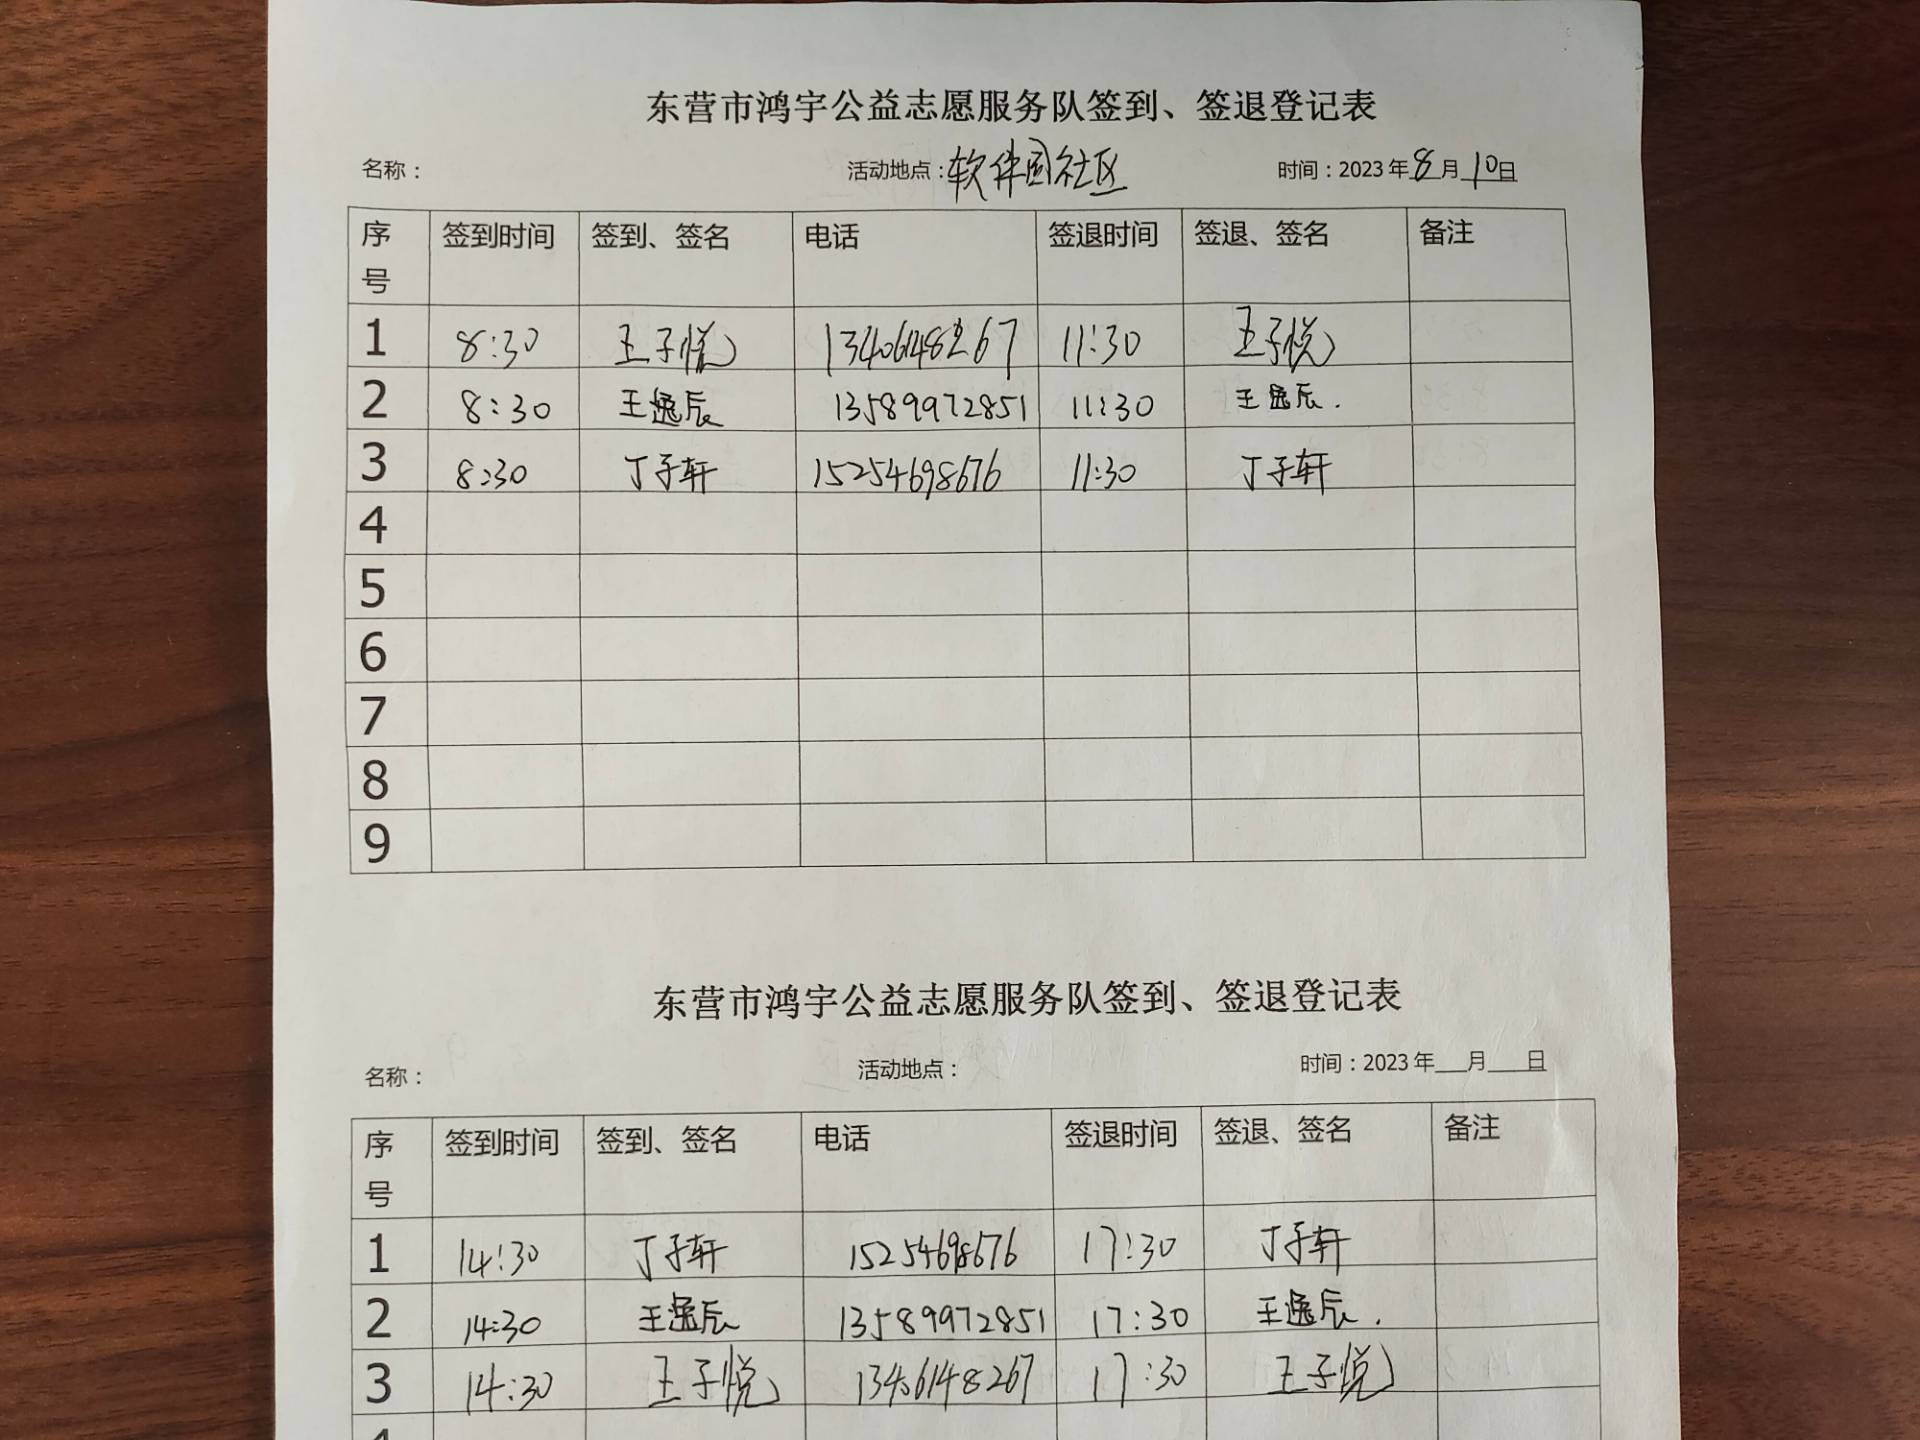 东营市鸿宇公益志愿服务队签到、签退登记表
名称： 活动地点：软件园社区 时间：2023年8月10日
序号 签到时间 签到、签名 电话 签退时间 签退、签名 备注
1 8:30 王子悦 13406148267 11:30 王子悦
2 8:30 王逸辰 13589972851 11:30 王逸辰.
3 8:30 丁子轩 15254698676 11:30 丁子轩
4
5
6
7
8
9
东营市鸿宇公益志愿服务队签到、签退登记表
名称： 活动地点： 时间：2023年___月___日
序号 签到时间 签到、签名 电话 签退时间 签退、签名 备注
1 14:30 丁子轩 15254698676 17:30 丁子轩
2 14:30 王逸辰 13589972851 17:30 王逸辰.
3 14:30 王子悦 13406148267 17:30 王子悦
4